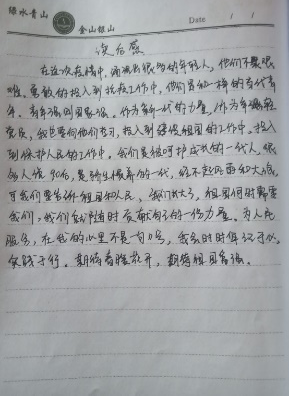 绿水青山
金山银山
Date / /
读后感
在这次疫情中,涌现出很多的年轻人,他们不畏艰
难,勇敢的投入到抗疫工作中,他们是和一样的当代青
年,青年强则国家强。作为新一代的力量,作为年轻的
党员,我也要向他们学习,投入到建设祖国的工作中,投入
到保护人民的工作中。我们是被呵护成长的一代人,很
多人说90后是娇生惯养的一代,经不起风雨和大浪,
可我们要告诉祖国和人民,我们长大了,祖国何时需要
我们,我们都随时贡献自己的一份力量。为人民
服务,在我的心里不是口号,我会时时牢记于心,
实践于行。期待春暖花开,期待祖国富强。